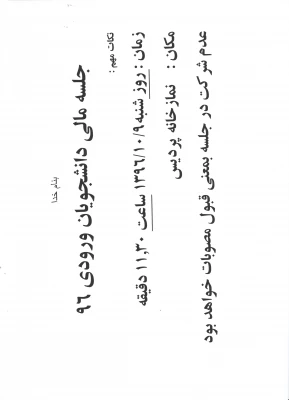 بنام خدا
جلسه مالی دانشجویان ورودی ۹۶
نکات مهم :
زمان : روز شنبه ۱۳۹۶/۱۰/۹ ساعت ۱۱,۳۰ دقیقه
مکان : نمازخانه پردیس
عدم شرکت در جلسه بمعنی قبول مصوبات خواهد بود